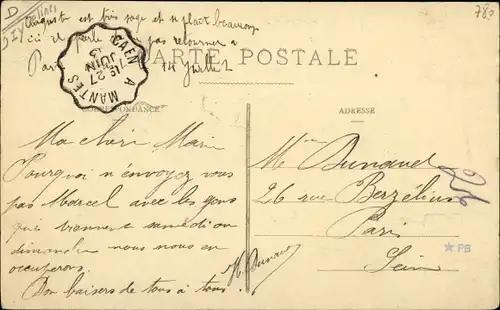 782
D
Auguste est très sage et se plait beaucoup
ici il parle pas retourner a
Paris 14 Juillet
CARTE POSTALE
CAEN A MANTES
27
JUIN
13
CORRESPONDANCE
ADRESSE
Ma chère Marie
Pourquoi n'envoyez vous
pas Marcel avec les gens
qui viennent samedi ou
dimanche nous nous en
occuperons.
Bon baisers de tous à tous.
M. Dunaud
Mme Dunaud
26 rue Berzélius
Paris
Seine
PB